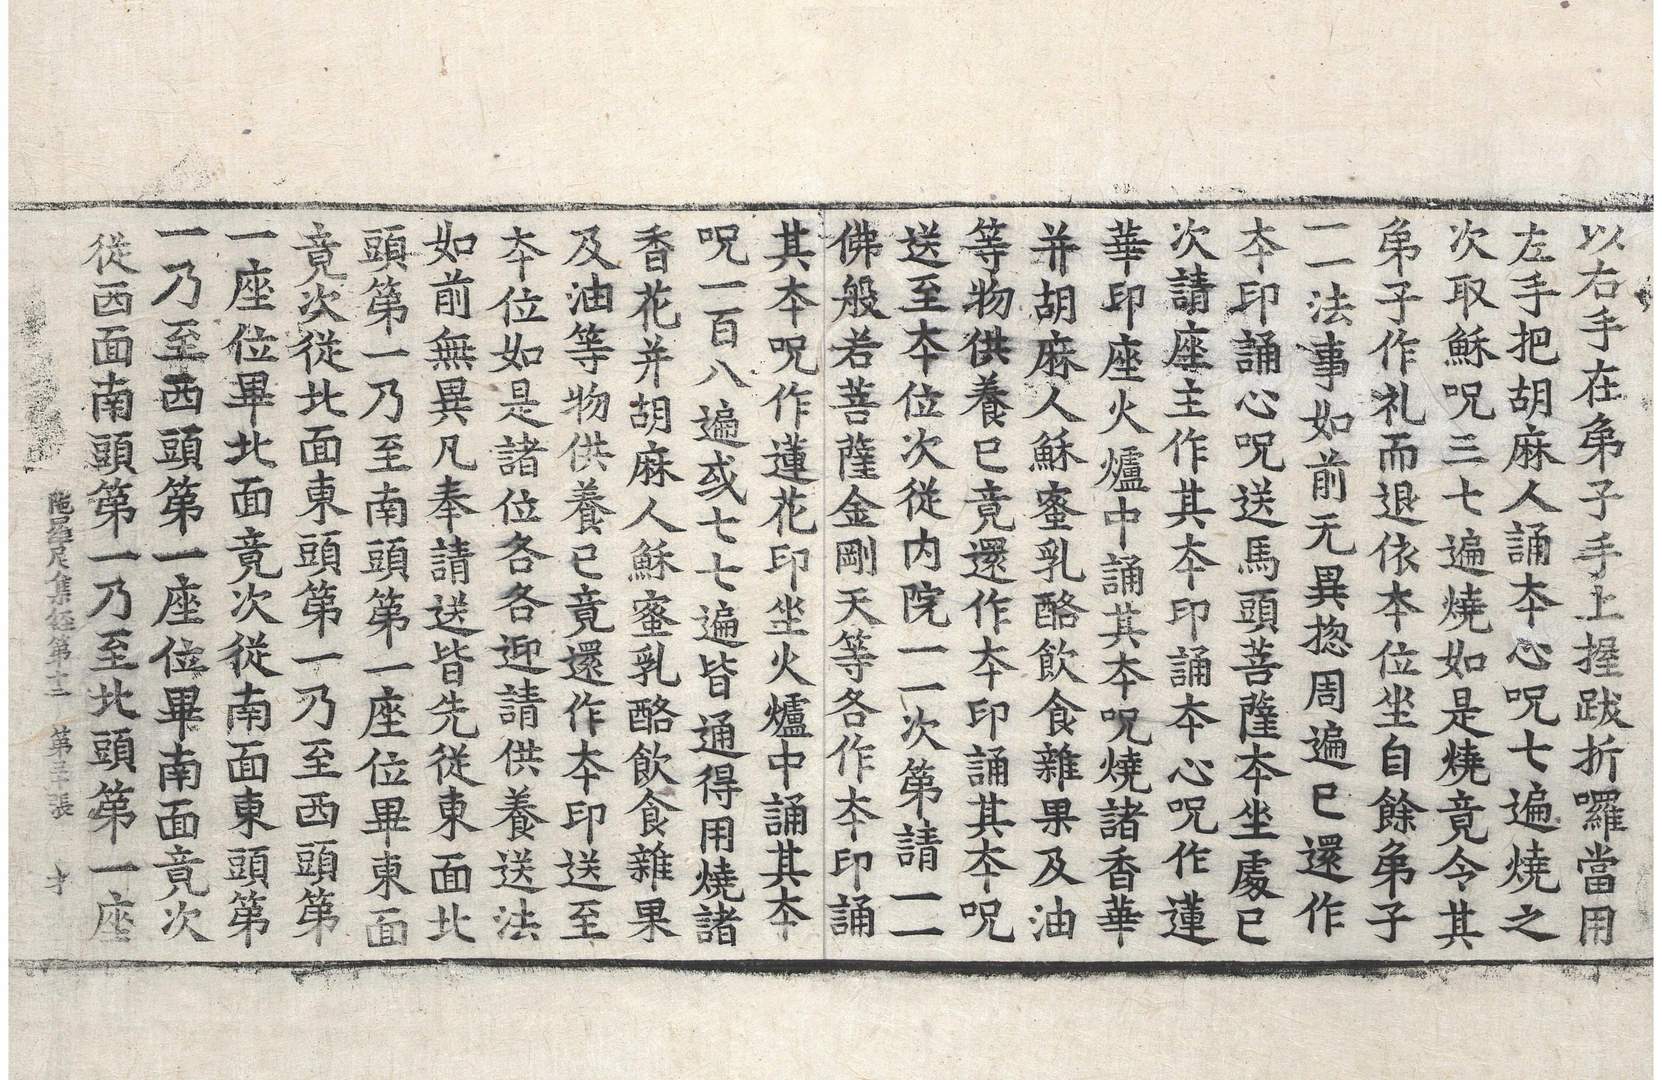 以右手在弟子手上握跋折囉當用
左手把胡麻人誦本心呪七遍燒之
次取穌呪三七遍燒如是燒竟令其
弟子作礼而退依本位坐自餘弟子
一一法事如前无異揔周遍已還作
本印誦心呪送馬頭菩薩本坐處已
次請座主作其本印誦本心呪作蓮
華印座火爐中誦其本呪燒諸香華
并胡麻人穌蜜乳酪飲食雜果及油
等物供養已竟還作本印誦其本呪
送至本位次從内院一一次第請一一
佛般若菩薩金剛天等各作本印誦
其本呪作蓮花印坐火爐中誦其本
呪一百八遍或七七遍皆通得用燒諸
香花并胡麻人穌蜜乳酪飲食雜果
及油等物供養已竟還作本印送至
本位如是諸位各各迎請供養送法
如前無異凡奉請送皆先從東面北
頭第一乃至南頭第一座位畢東面
竟次從北面東頭第一乃至西頭第
一座位畢北面竟次從南面東頭第
一乃至西頭第一座位畢南面竟次
從西面南頭第一乃至北頭第一座
陁羅尼集經第十二 第三張 才